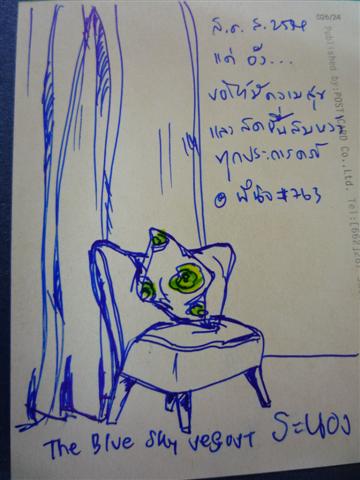 026/24
ส.ค.ส. ๒๕๕๔
แด่ อัง...
ขอให้มีความสุข
และ สดชื่นสมหวัง
ทุกประการครับ
#763
Published by:POST CARD Co.,Ltd. Tel:(662)
The Blue Sky resort ระนอง